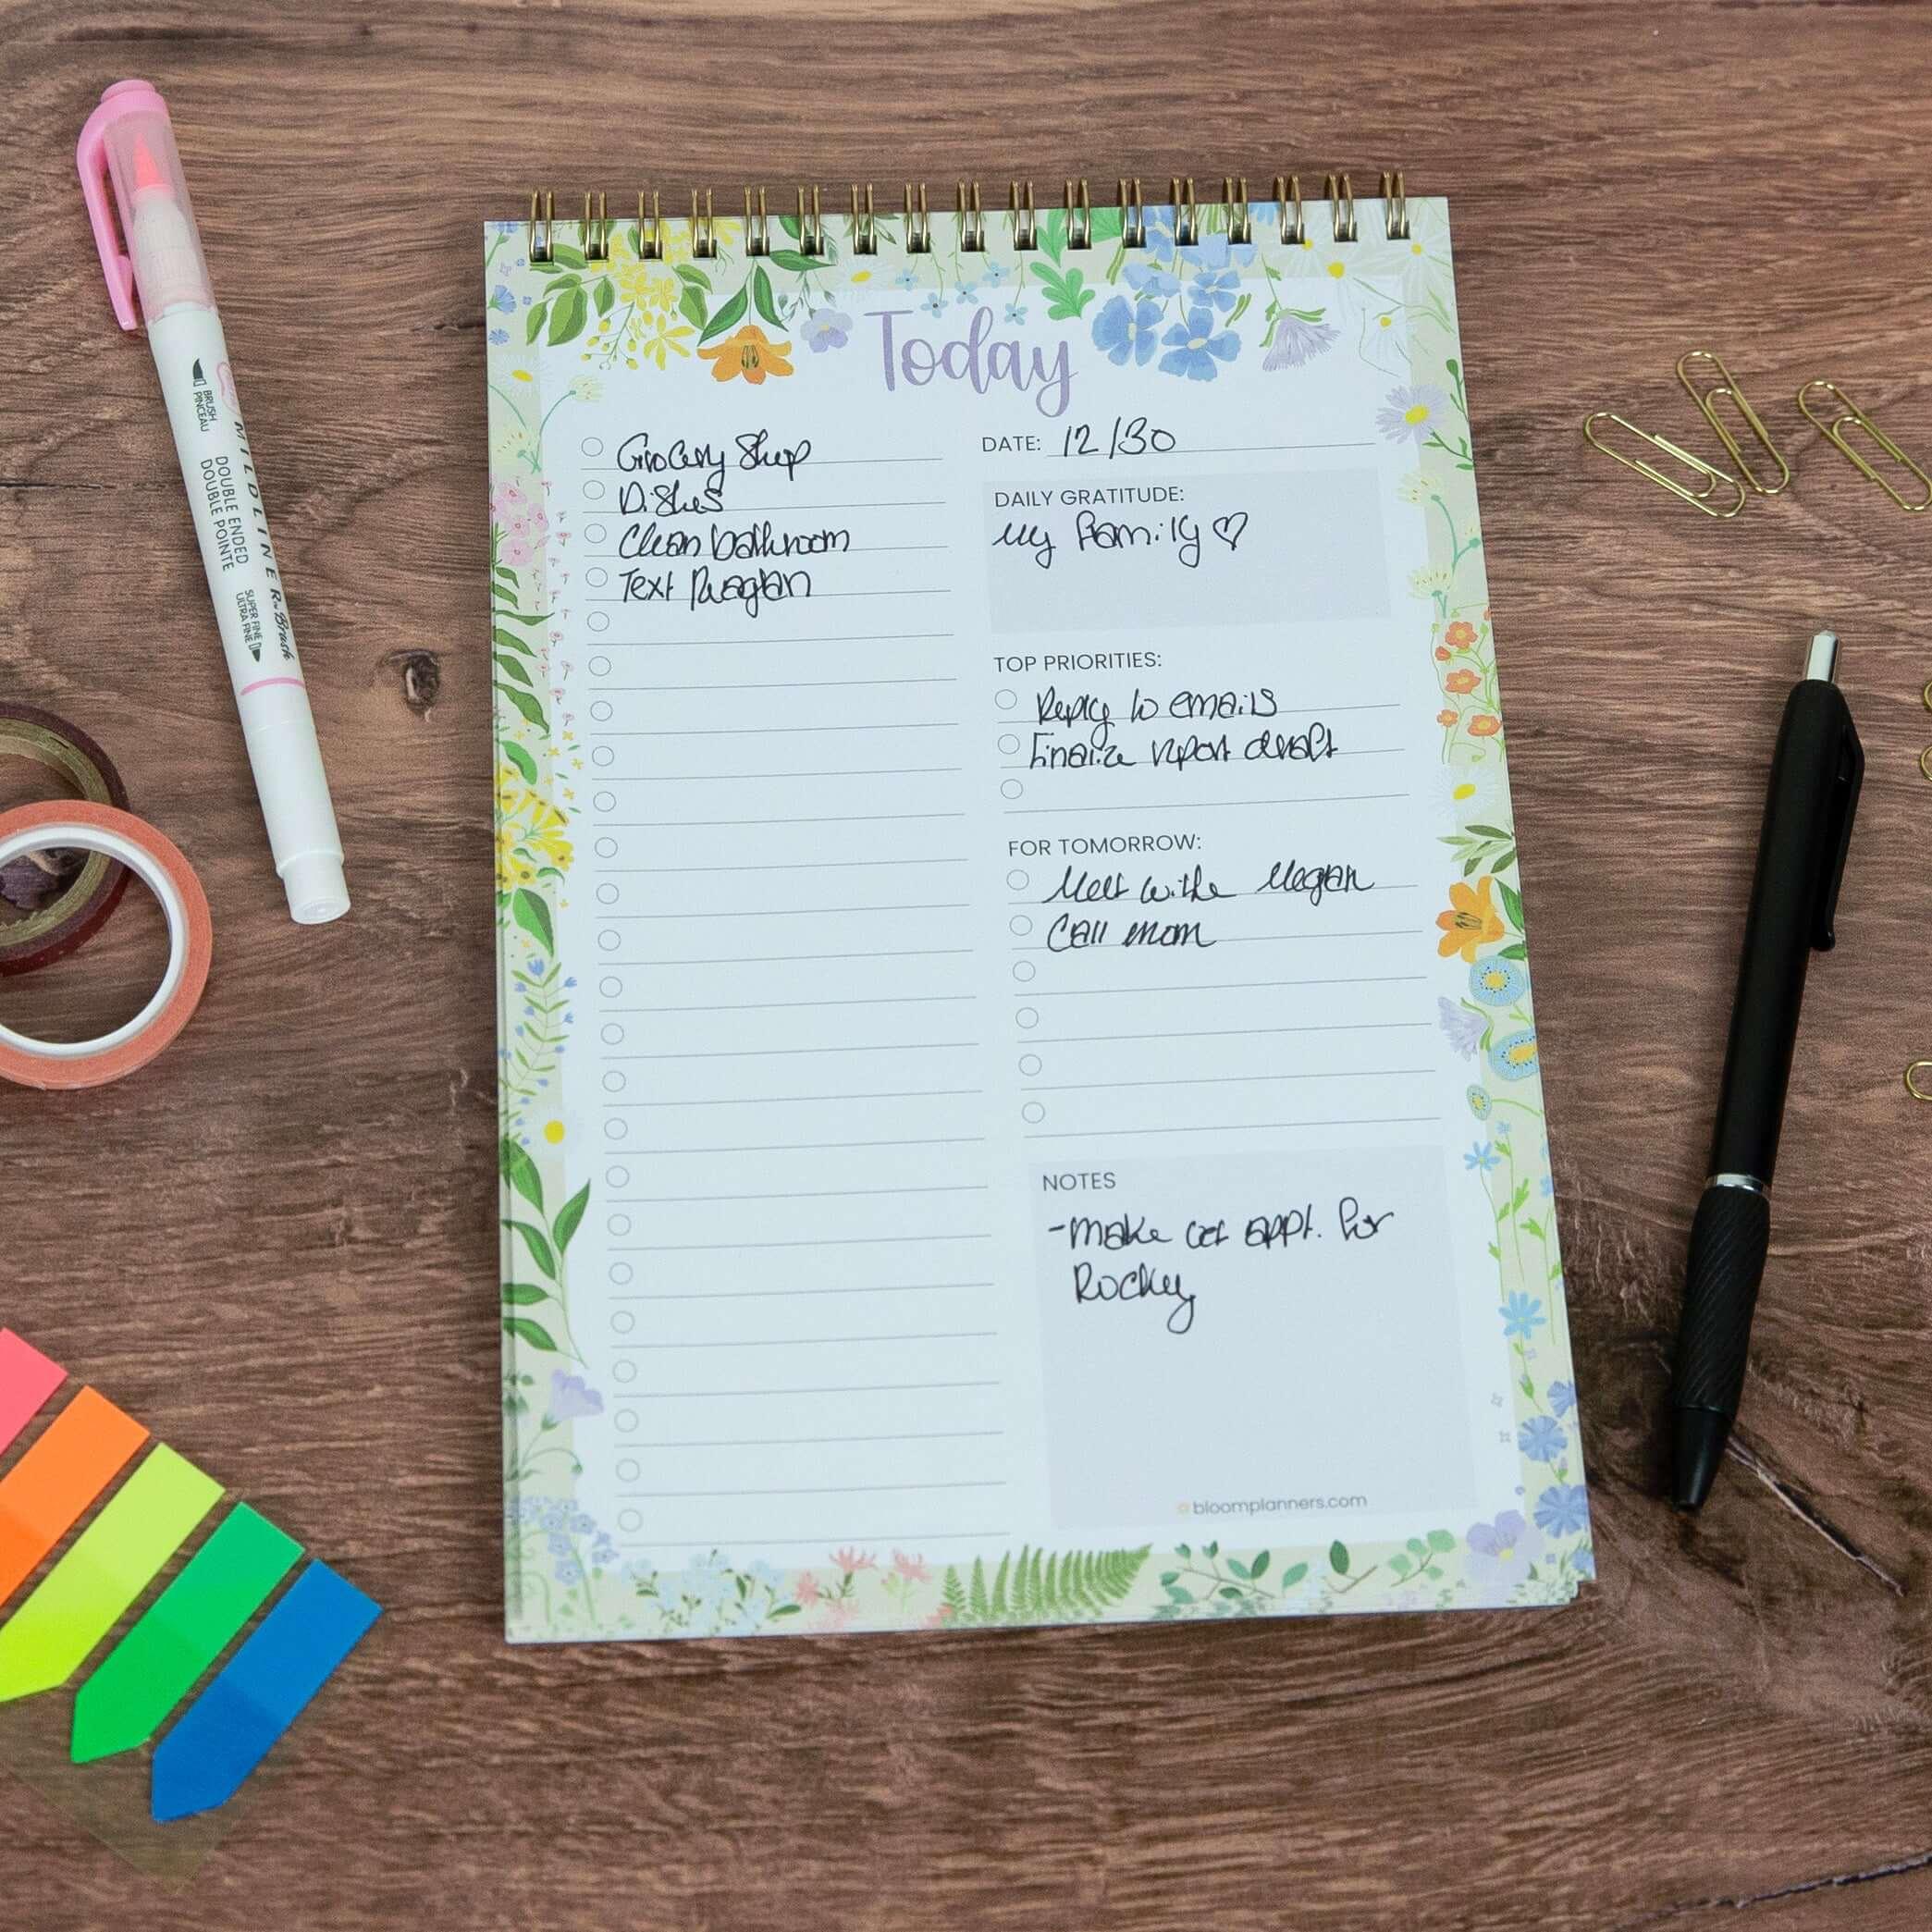 Today
Grocery Shop
Dishes
Clean bathroom
Text Reagan
DATE: 12/30
DAILY GRATITUDE:
My Family ♡
TOP PRIORITIES:
Reply to emails
Finalize report draft
FOR TOMORROW:
Meet with Megan
Call mom
NOTES
-Make vet appt. for
Rocky
bloomplanners.com
BRUSH
PINCEAU
MILDLINER Brush
DOUBLE ENDED
DOUBLE POINTE
SUPER FINE
ULTRA FINE